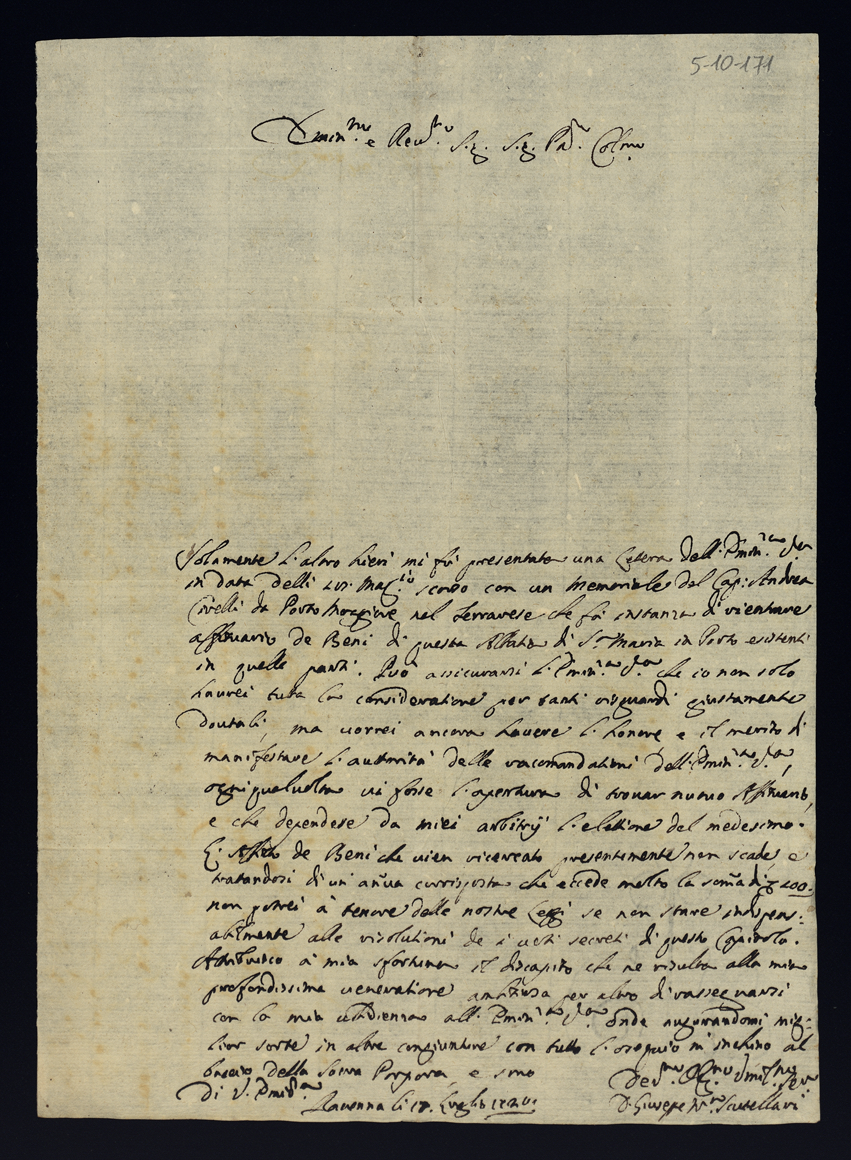 5-10-171
Emin.mo e Rev.mo Sig. Sig. Pad. Col.mo
Solamente l'altro hieri mi fù presentata una lettera dell'Emin.za V.a
in data delli Mag.io scorso con un Memoriale del Cap: Andrea
Civelli da Porto Maggiore nel Ferrarese che fà instanza di rientrare
affittuario de Beni di questa Abbatia di S.ta Maria in Porto esistenti
in quelle parti. Può assicurarsi l'Emin.za V.a che io non solo
haurei tutta la consideratione per tanti risguardi giustamente
douutali, ma uorrei ancora hauere l'honore e il merito di
manifestare l'auttorità delle racomandationi dell'Emin.za V.a,
ogni qualuolta ui fosse l'apertura di trouar nuouo Affittuario,
e che dependese da miei arbitrij l'elettione del medesimo.
L'Affitto de Beni che uien ricercato presentemente non scade, e
tratandosi di un'añua corrisposta che eccede molto la som̃a di 200.
non potrei à tenore delle nostre Leggi se non stare indispens=
abilmente alle risolutioni de i uoti secreti di questo Capitolo.
Attribuisco à mia sfortuna il discapito che ne risulta alla mia
profondissima ueneratione per altro di rassegnarsi
con la mia ubidienza all'Emin.za V.a onde augurandomi mig=
lior sorte in altre congiunture con tutto l'ossequio m'inchino al
baccio della Sacra Porpora, e sono
Di V. Emin.za
Dev.mo Obl.mo Umil.mo Ser.re
Ravenna li 17. Luglio 1720.
D. Giuseppe M.a Scutellari